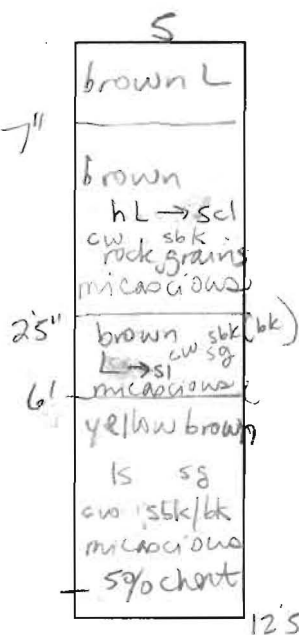 5
brown L
7"
brown
hL → scl
cw sbk
rock grains
micaocious
2'5"
brown sbk (bk)
L → sl cw sg
micaocious
6'
yellow brown
ls sg
cw sbk/bk
micaocious
5% chert
12'5